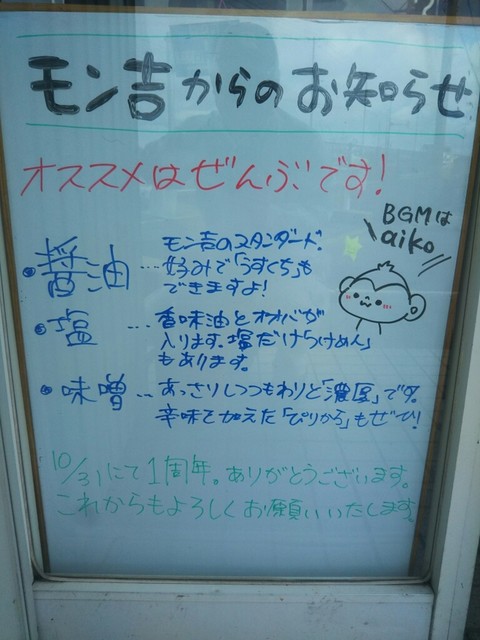 モン吉からのお知らせ
オススメはぜんぶです!
BGMは
aiko
・醤油…モン吉のスタンダード。
好みで「うすくち」も
できますよ!
・塩…香味油とオオバが
入ります。塩だけ「つけめん」
もあります。
・味噌…あっさりしつつもわりと「濃厚」です。
辛味を加えた「ぴりから」もぜひ!
10/31にて1周年。ありがとうございます。
これからもよろしくお願いいたします。